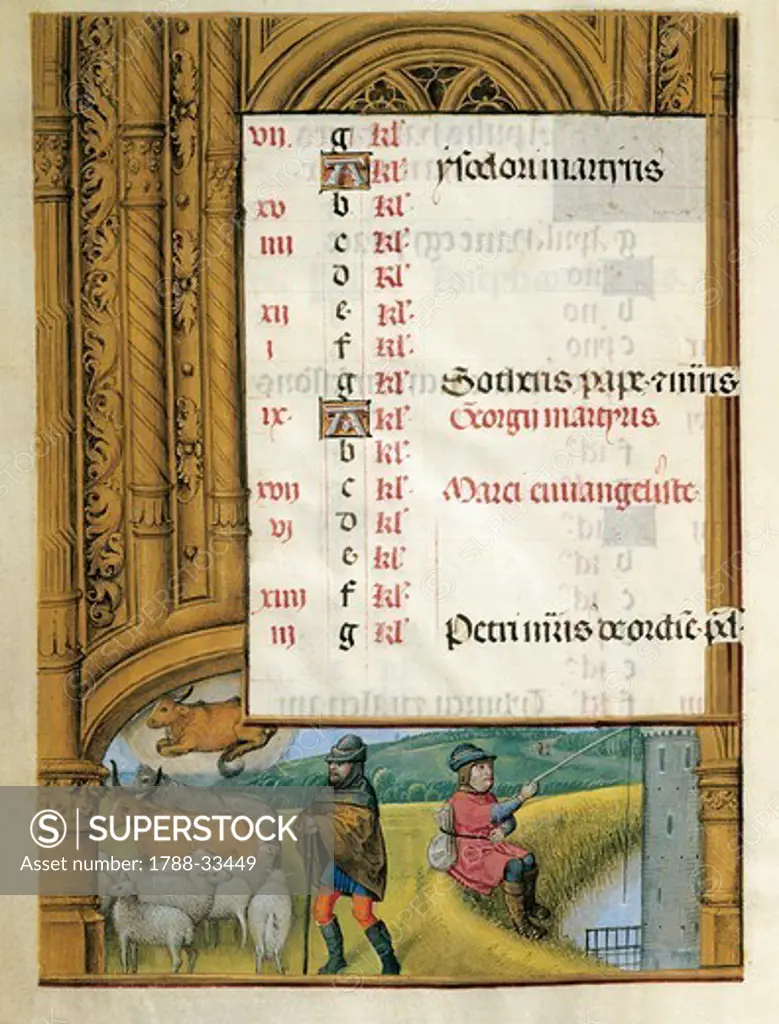 vii. g kl'
A kl' ysodori martyris
xv b kl'
iiii c kl'
d kl'
xii e kl'
i f kl'
g kl' Sothetis pape
ix A kl' Georgii martyris.
b kl'
xvii c kl' Marci euuangeliste
vi d kl'
e kl'
xiiii f kl'
iii g kl' Petri
SUPERSTOCK
Asset number: 1788-33449